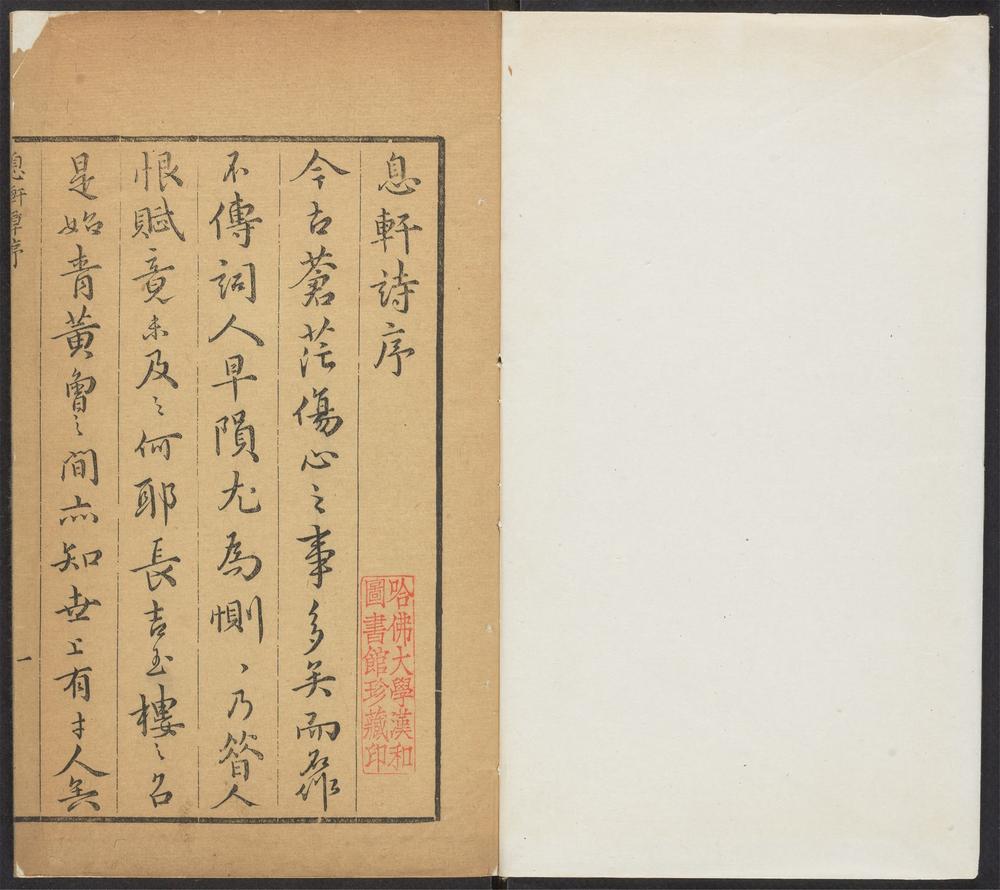 息軒詩序
哈佛大學漢和
圖書館珍藏印
今古蒼茫傷心之事多矣而
不傳詞人早隕尤為惻〻乃昔人
恨賦竟未及之何耶長吉玉樓之名
是始青黃會之間亦知世上有才人矣
息軒草序
一